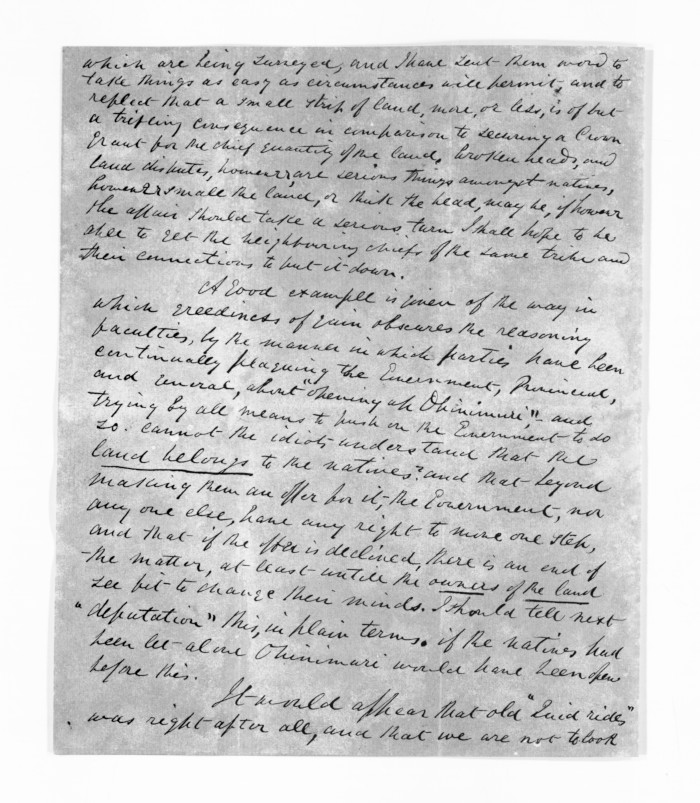 which are being surveyed, and I have sent them word to
take things as easy as circumstances will permit, and to
reflect that a small strip of land, more, or less, is of but
a trifling consequence in comparison to securing a Crown
Grant for the chief quantity of the land, broken heads, and
land disputes, however, are serious things amongst natives,
however small the land, or thick the head, may be, if however
the affair should take a serious turn I shall hope to be
able to get the neighbouring chiefs of the same tribe and
their connections to put it down.
A good example is given of the way in
which greediness of gain obscures the reasoning
faculties, by the manner in which parties have been
continually plaguing the Government, Provincial,
and General, about "opening up Ohinimuri," and
trying by all means to push on the Government to do
so. cannot the idiots understand that the
land belongs to the natives? and that beyond
making them an offer for it, the Government, nor
any one else, have any right to move one step,
and that if the offer is declined, there is an end of
the matter, at least untill the owners of the land
see fit to change their minds. I should tell next
"deputation" this, in plain terms. if the natives had
been let alone Ohinimuri would have been open
before this.
It would appear that old
was right after all, and that we are not to look